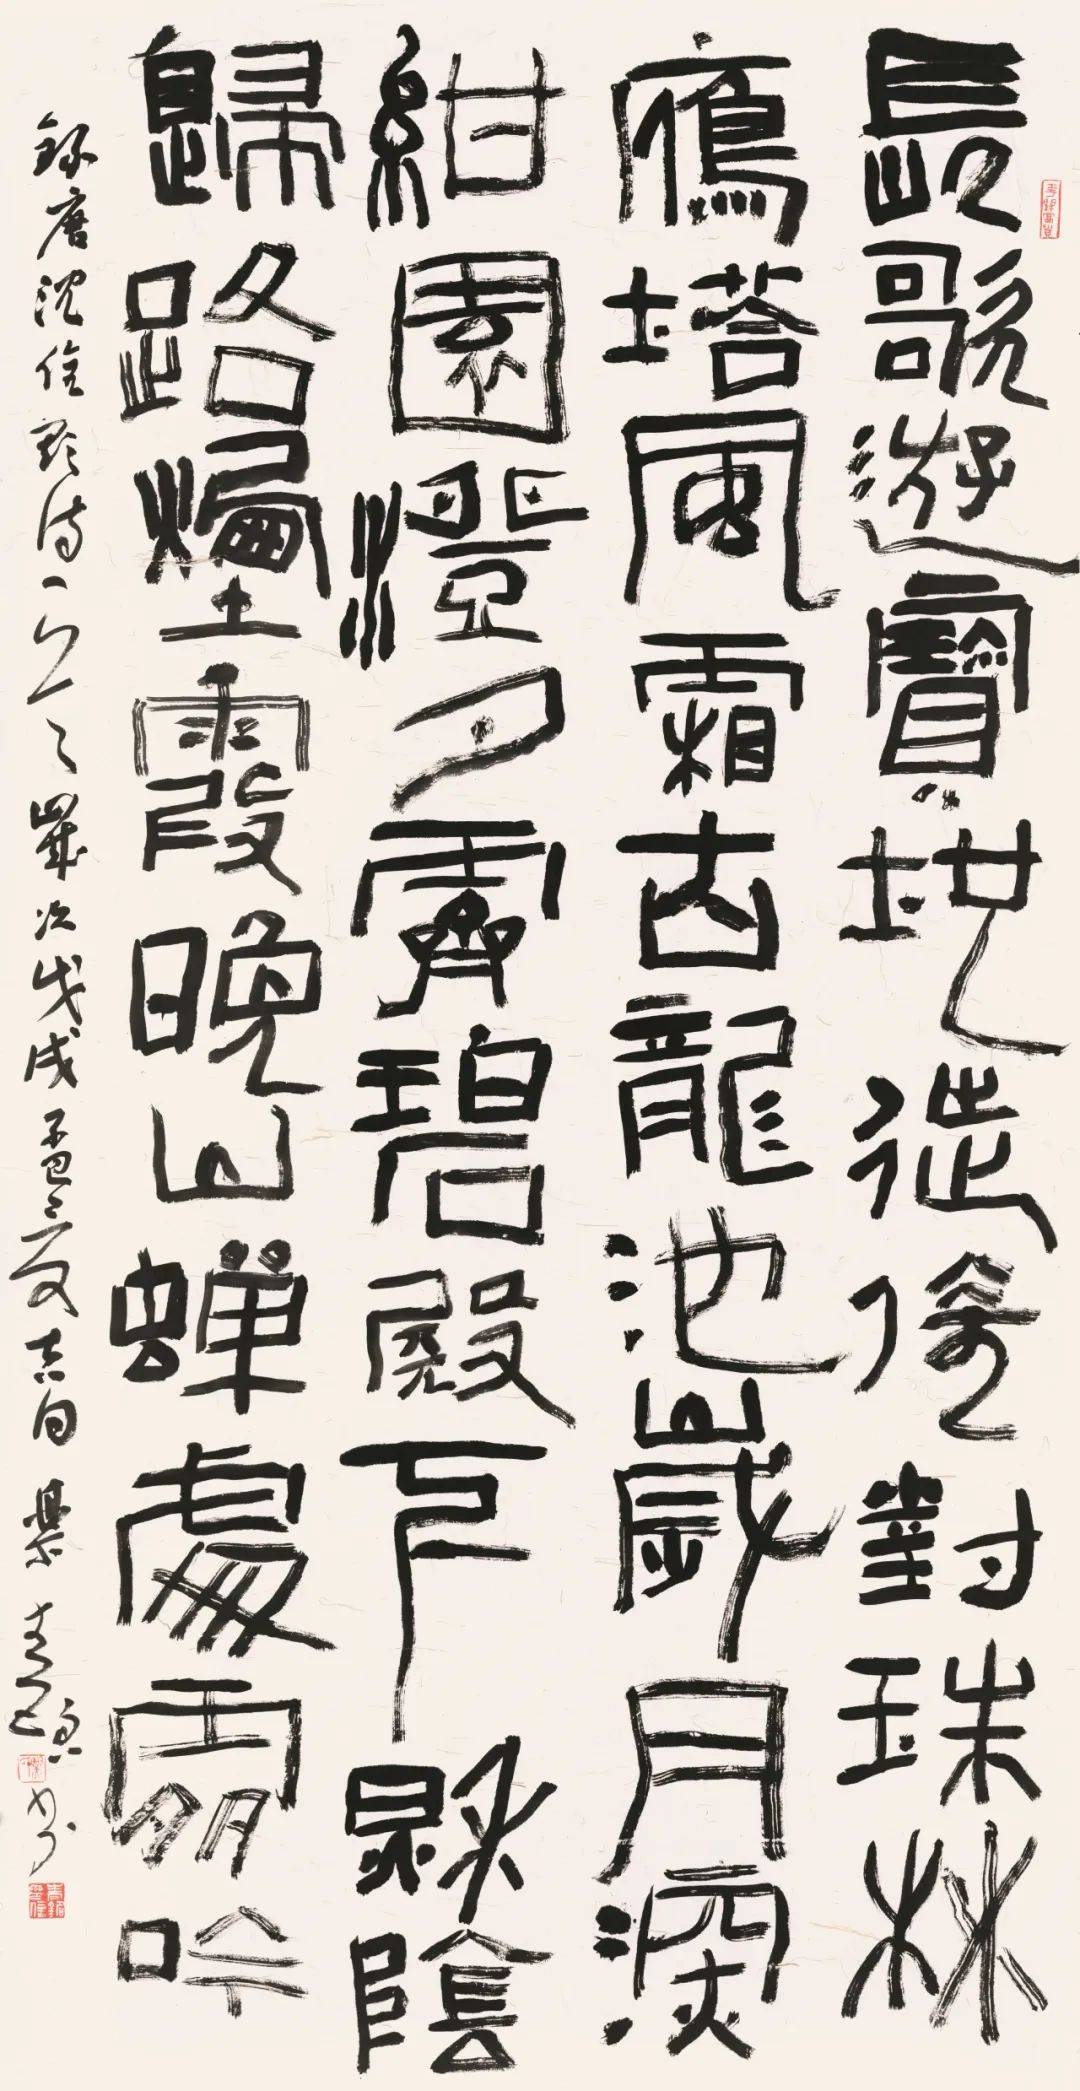 長歌遊寶地徙倚對珠林
鴈塔風霜古龍池歲月深
紺園澄夕霽碧殿下秋陰
歸路煙霞晚山蟬處吟
錄唐沈佺期詩一首歲次戊戌孟夏吉日